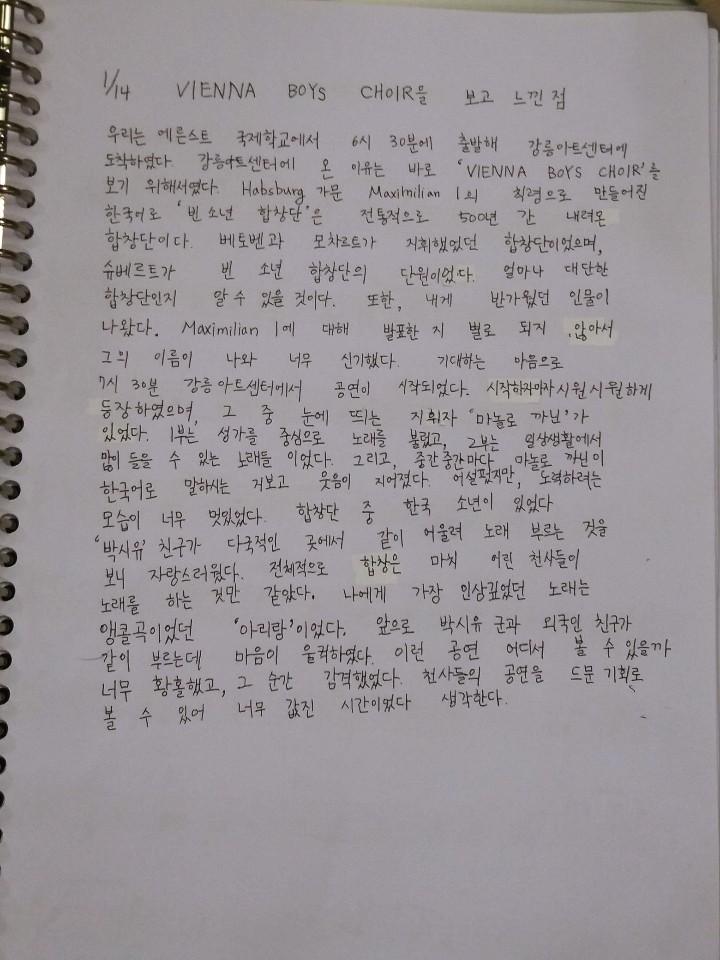 1/14 VIENNA BOYS CHOIR을 보고 느낀 점
우리는 에른스트 국제학교에서 6시 30분에 출발해 강릉아트센터에
도착하였다. 강릉아트센터에 온 이유는 바로 'VIENNA BOYS CHOIR'를
보기 위해서였다. Habsburg 가문 Maximilian I의 칙령으로 만들어진
한국어로 '빈 소년 합창단'은 전통적으로 500년 간 내려온
합창단이다. 베토벤과 모차르트가 지휘했었던 합창단이었으며,
슈베르트가 빈 소년 합창단의 단원이었다. 얼마나 대단한
합창단인지 알 수 있을 것이다. 또한, 내게 반가웠던 인물이
나왔다. Maximilian I에 대해 발표한 지 별로 되지 않아서
그의 이름이 나와 너무 신기했다. 기대하는 마음으로
7시 30분 강릉아트센터에서 공연이 시작되었다. 시작하자마자 시원시원하게
등장하였으며, 그 중 눈에 띄는 지휘자 '마놀로 까닌'가
있었다. 1부는 성가를 중심으로 노래를 불렀고, 2부는 일상생활에서
많이 들을 수 있는 노래들 이었다. 그리고, 중간중간마다 마놀로 까닌이
한국어로 말하시는 거보고 웃음이 지어졌다. 어설펐지만, 노력하려는
모습이 너무 멋있었다. 합창단 중 한국 소년이 있었다
'박시유' 친구가 다국적인 곳에서 같이 어울려 노래 부르는 것을
보니 자랑스러웠다. 전체적으로 합창은 마치 어린 천사들이
노래를 하는 것만 같았다. 나에게 가장 인상깊었던 노래는
앵콜곡이었던 '아리랑'이었다. 앞으로 박시유 군과 외국인 친구가
같이 부르는데 마음이 울컥하였다. 이런 공연 어디서 볼 수 있을까
너무 황홀했고, 그 순간 감격했었다. 천사들의 공연을 드문 기회로
볼 수 있어 너무 값진 시간이었다 생각한다.